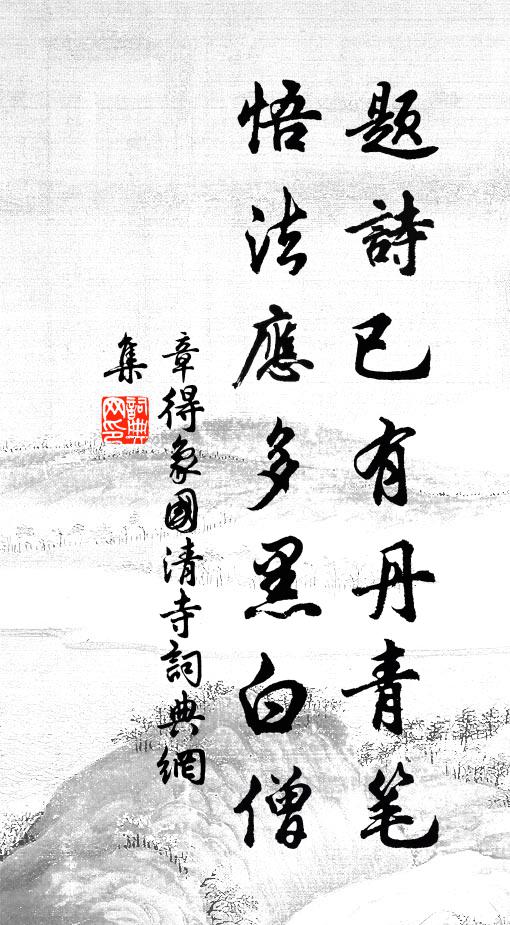 题詩已有丹青笔
悟法應多黑白僧
章得象國清寺詞典網
集
詞典網印